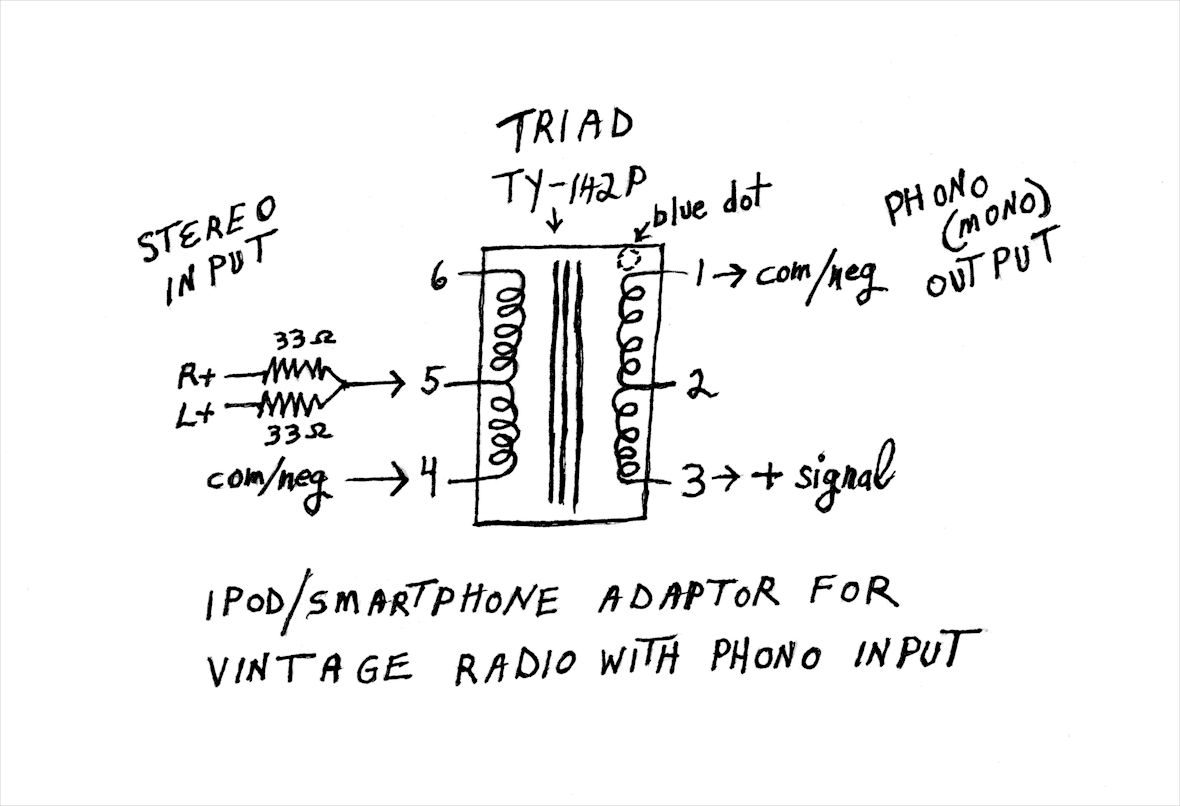 TRIAD
TY-142P
blue dot
STEREO
INPUT
PHONO
(MONO)
OUTPUT
6
1 → com/neg
33Ω
R+
L+
33Ω
5
2
com/neg
4
3 → + signal
IPOD/SMARTPHONE ADAPTOR FOR
VINTAGE RADIO WITH PHONO INPUT